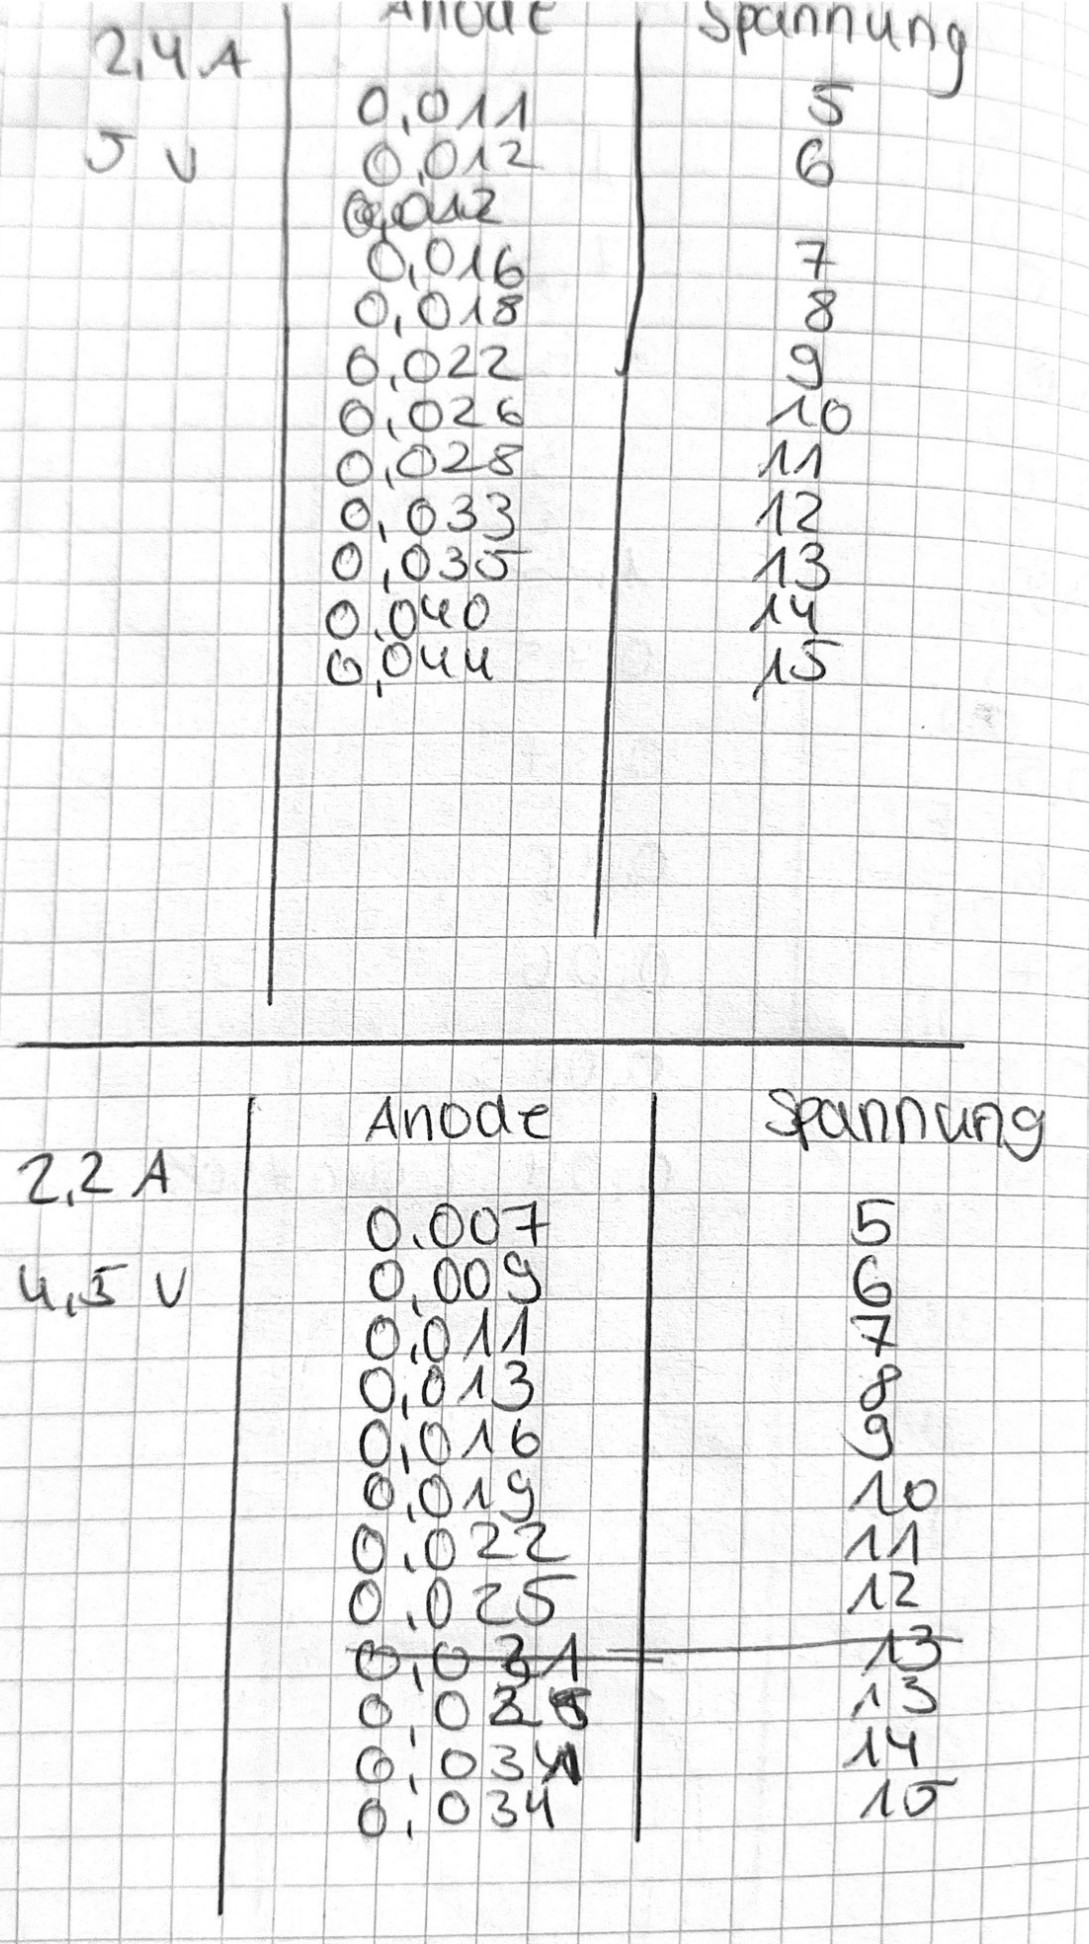 Anode Spannung
2,4 A
0,011 5
5 V
0,012 6
0,012
0,016 7
0,018 8
0,022 9
0,026 10
0,028 11
0,033 12
0,035 13
0,040 14
0,044 15
Anode Spannung
2,2 A
0.007 5
4,5 V
0,009 6
0,011 7
0,013 8
0,016 9
0,019 10
0,022 11
0,025 12
0,031 13
13
14
0,034 15